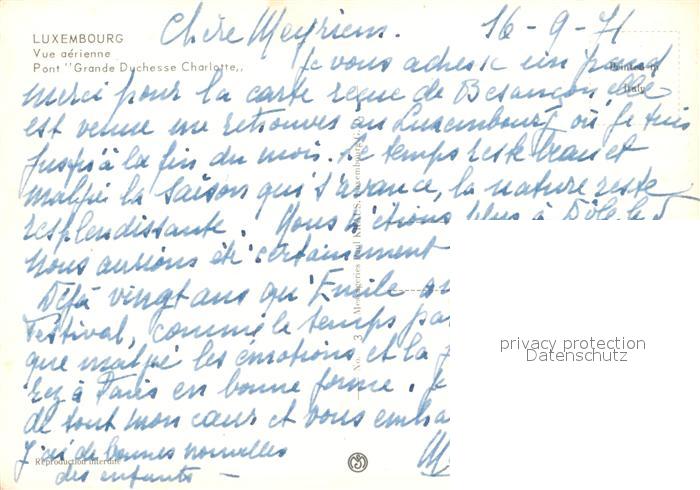 LUXEMBOURG
Vue aérienne
Pont "Grande Duchesse Charlotte,,
Chère 16-9-71
Je vous adresse un grand
Printed in
Italy
merci pour la carte reçue de Besançon elle
est venue me retrouver en Luxembourg où je suis
jusqu'à la fin du mois. Le temps reste beau et
malgré la saison qui s'avance, la nature reste
resplendissante. Nous n'étions plus à Dôle le 5
nous aurions été certainement
Déjà vingt ans qu'Emile
Festival, comme le temps pa
que malgré les émotions et la
rez à Paris en bonne forme. Je
de tout mon cœur et vous embra
J'ai de bonnes nouvelles
des enfants -
Reproduction interdite
No. 3
Messageries Paul KRAUS, Luxembourg
privacy protection
Datenschutz